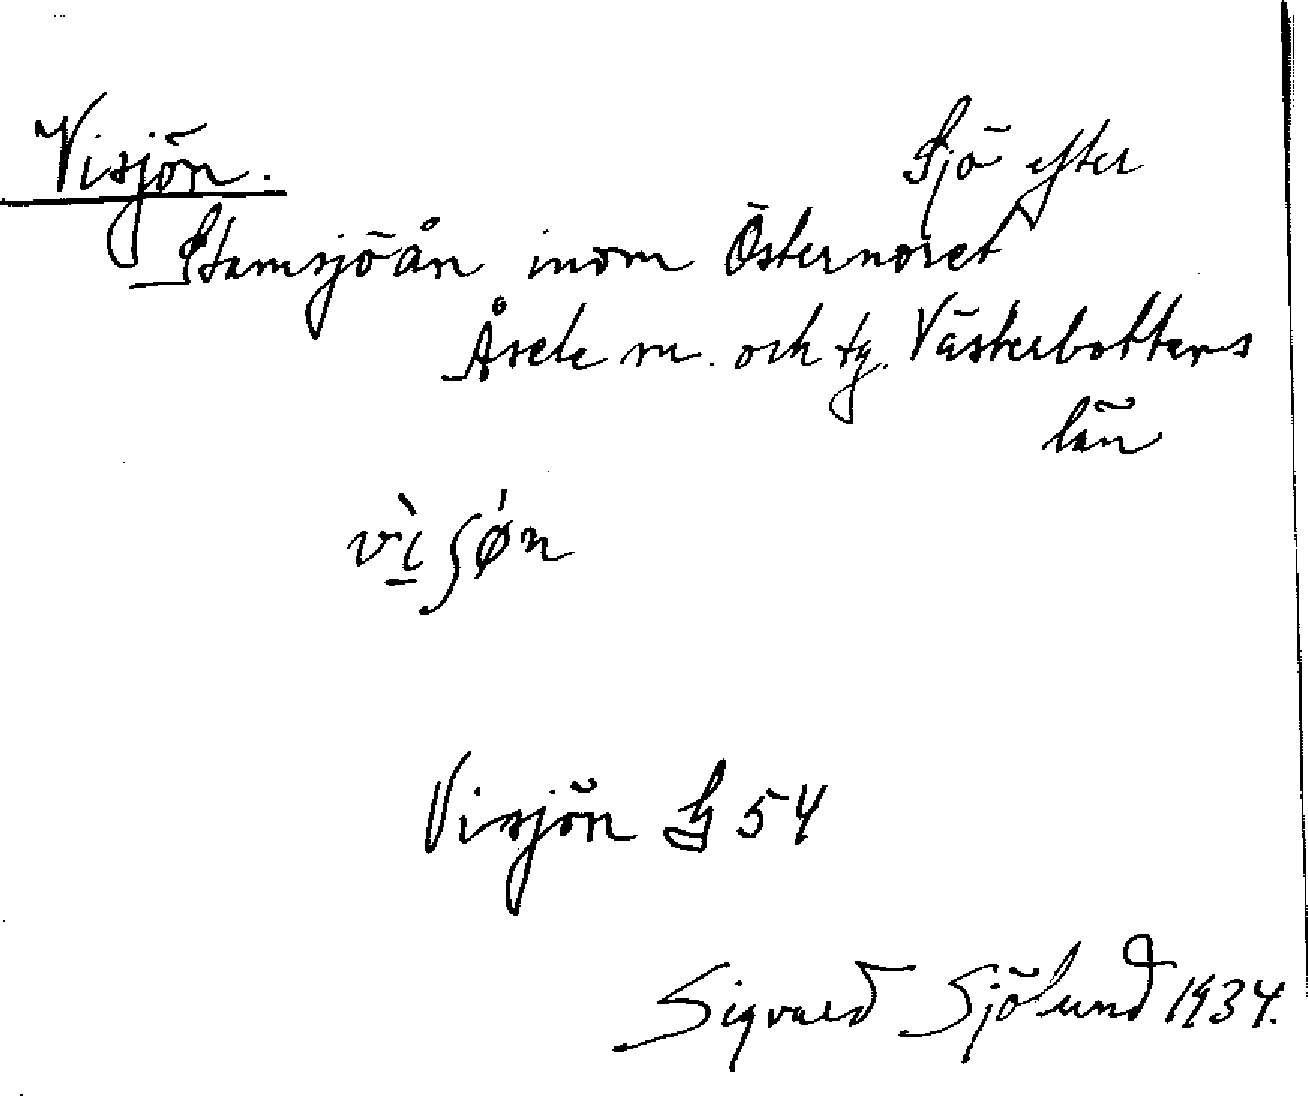 Visjön. Sjö efter
Stamsjöån inom Östernoret
Åsele sn. och tg. Västerbottens
län
vìʃøń
Visjön 54
Sigvard Sjölund 1934.